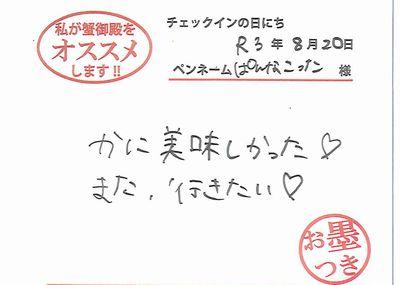 私が蟹御殿を
オススメ
します!!
チェックインの日にち
R3年8月20日
ペンネーム ぱんなこった 様
かに美味しかった♡
また、行きたい♡
お墨
つき